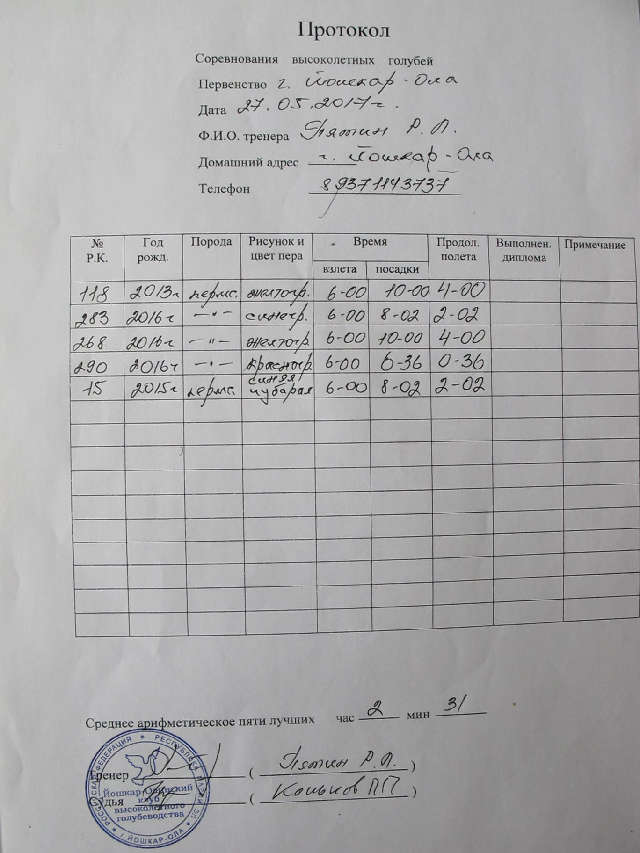 Протокол
Соревнования высоколетных голубей
Первенство г. Йошкар-Ола
Дата 27.05.2017г.
Ф.И.О. тренера Пятин Р. П.
Домашний адрес г. Йошкар-Ола
Телефон 89371143737
№ Р.К. Год рожд. Порода Рисунок и цвет пера Время взлета посадки Продол. полета Выполнен. диплома Примечание
118 2013г пермс. желтогр. 6-00 10-00 4-00
283 2016г —"— синегр. 6-00 8-02 2-02
268 2016г —"— желтогр. 6-00 10-00 4-00
290 2016г —"— красногр. 6-00 6-36 0-36
15 2015г пермс. синяя чубарая 6-00 8-02 2-02
Среднее арифметическое пяти лучших час 2 мин 31
Тренер ( Пятин Р. П. )
Судья ( Коньков П П )
РОССИЙСКАЯ ФЕДЕРАЦИЯ * РЕСПУБЛИКА МАРИЙ ЭЛ
Йошкар-Олинский
клуб
высоколетного
голубеводства
* г. ЙОШКАР-ОЛА *